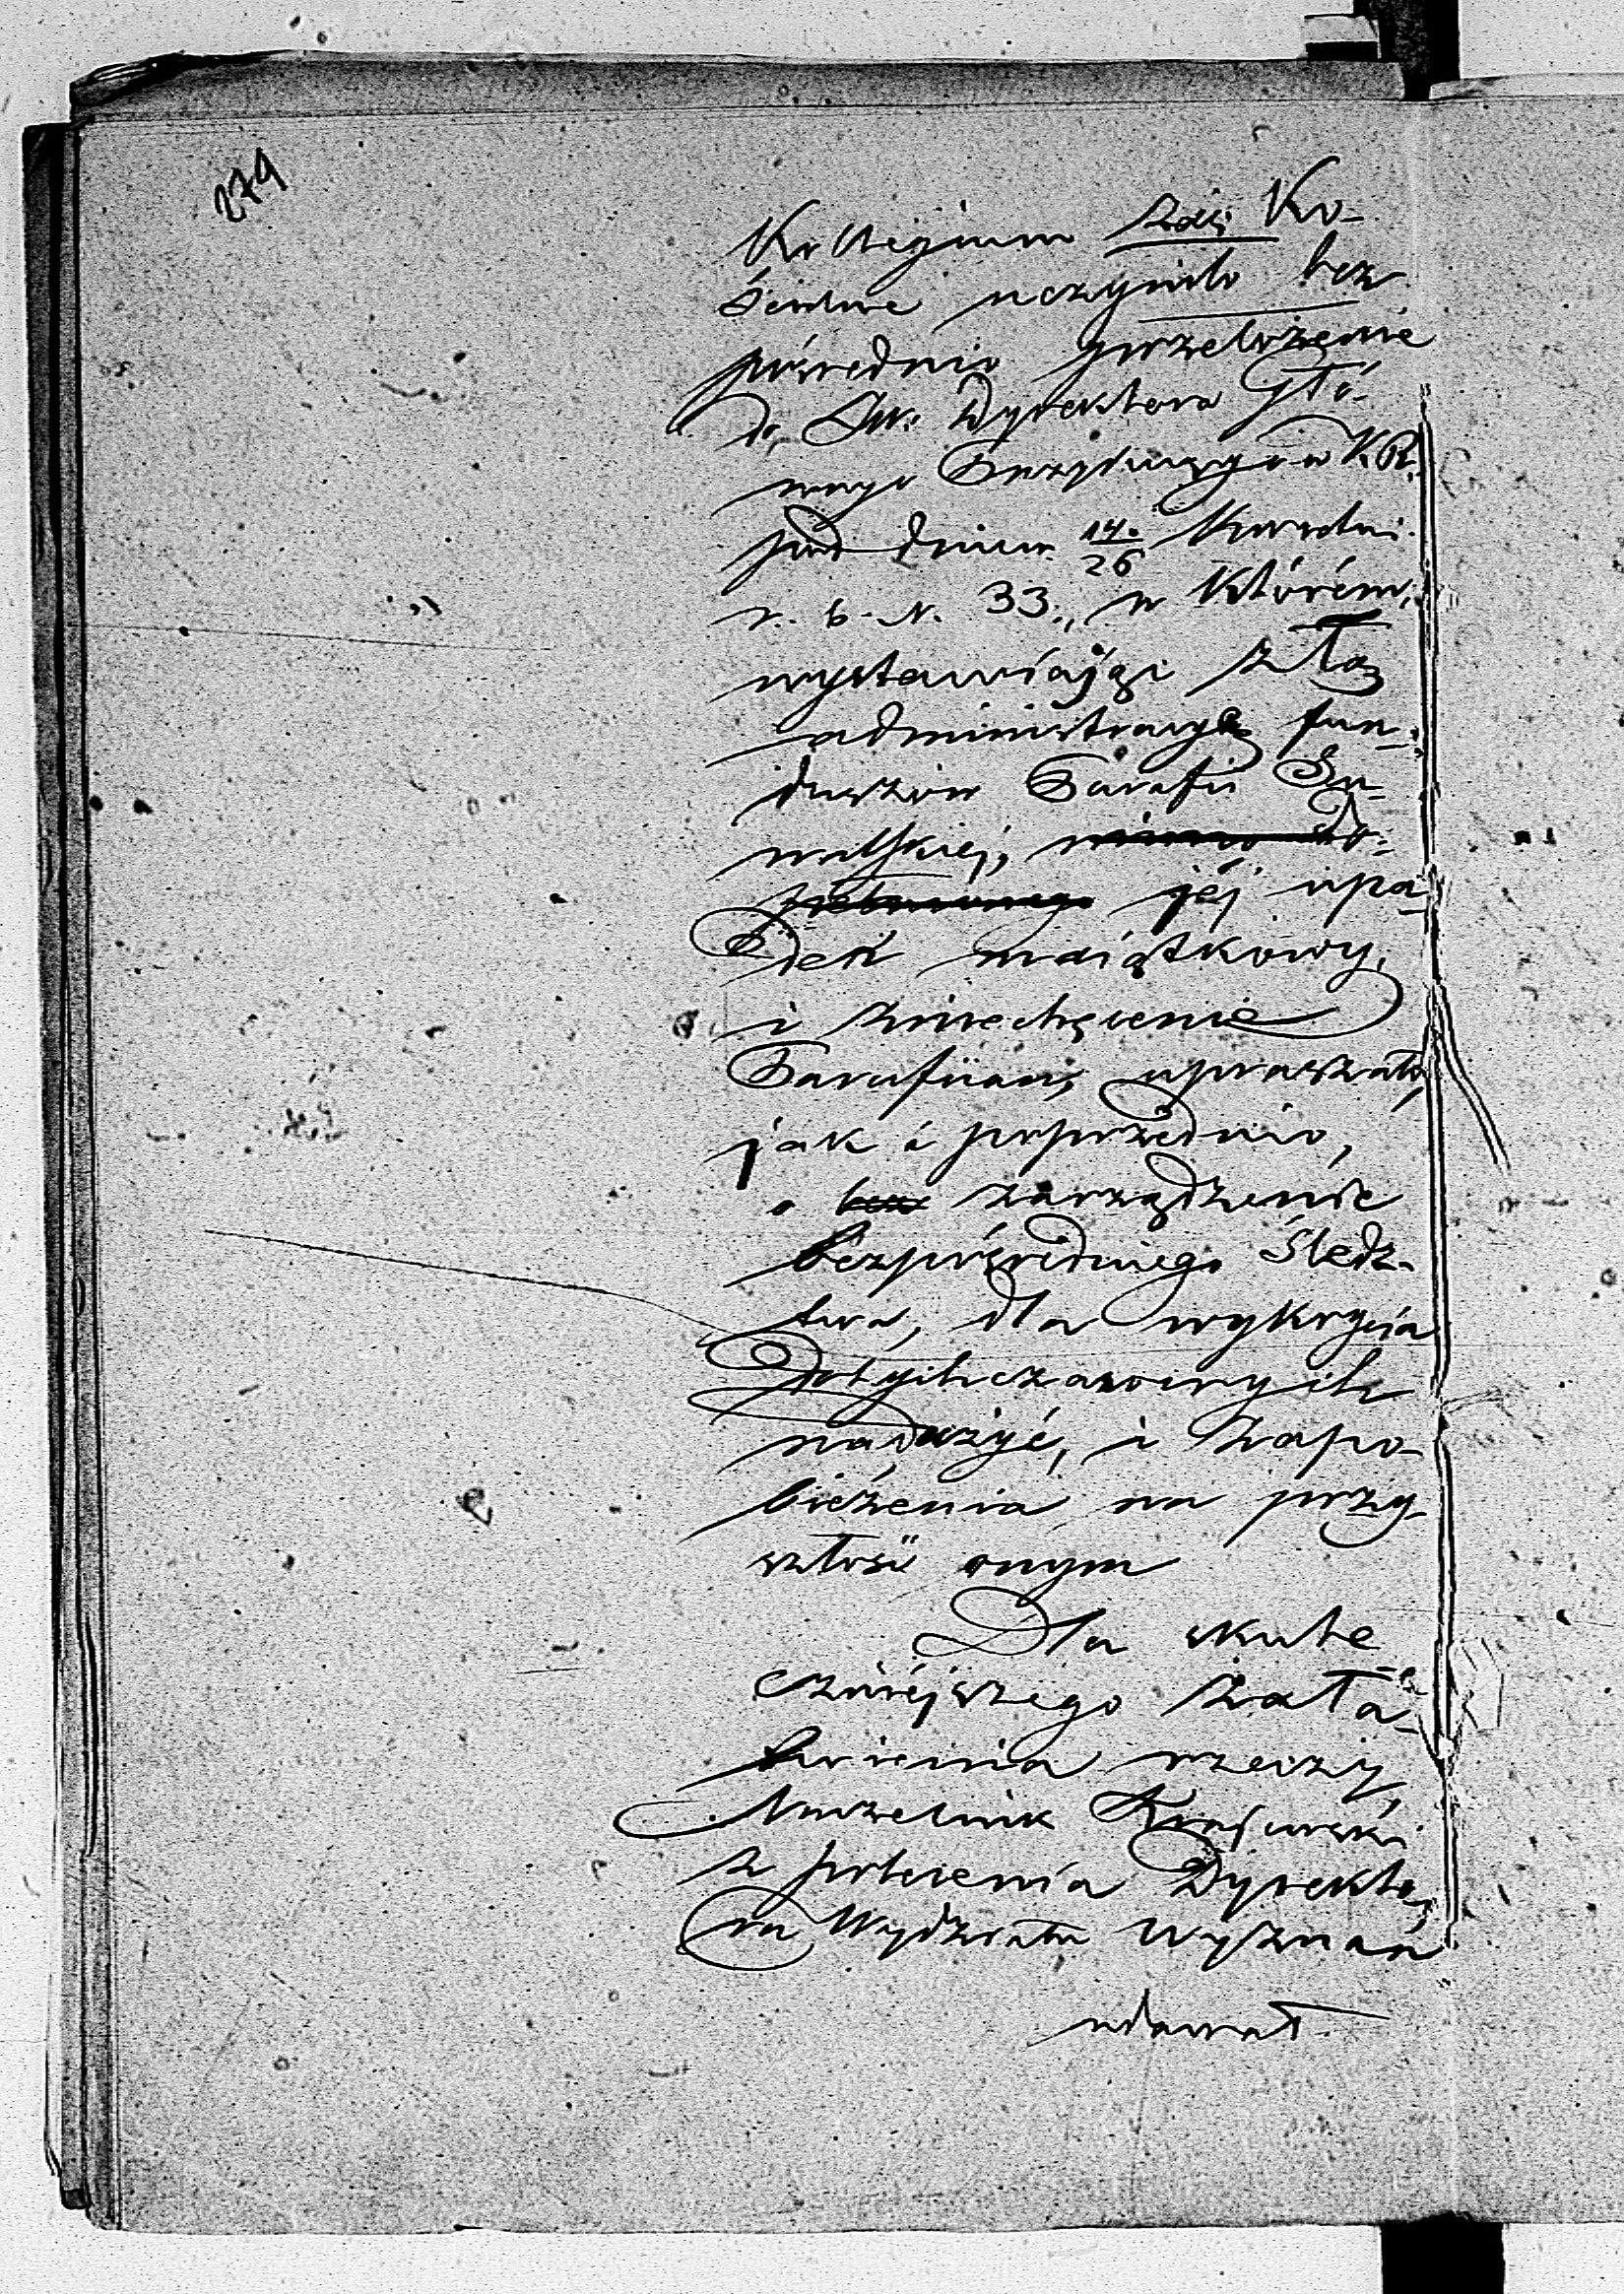 274
Kollegium zaś Ko-
ścielne uczyniło bez
pośrednio przełożenie
do JW. Dyrektora Głó-
wnego Prezydującego w K. R.
pod dniem 14./26 Kwietni.
r. b. N. 33., w którém,
wystawiając złą
administracyę fun-
duszów Parafii Su-
walskiej, mimo do-
jéj upa
dek maiątkowy,
i zniechęcenie
Parafian, upraszało,
jak i poprzednio,
o bez zarządzenie
bezpośredniego śledz-
twa, dla wykrycia
dotychczasowych
nadużyć, i zapo-
bieżenia na przy-
szłość onym
Dla skute
czniejszego zała-
twienia rzeczy,
Naczelnik Krajewski
z polecenia Dyrekto-
ra Wydziału Wyznań
udawał